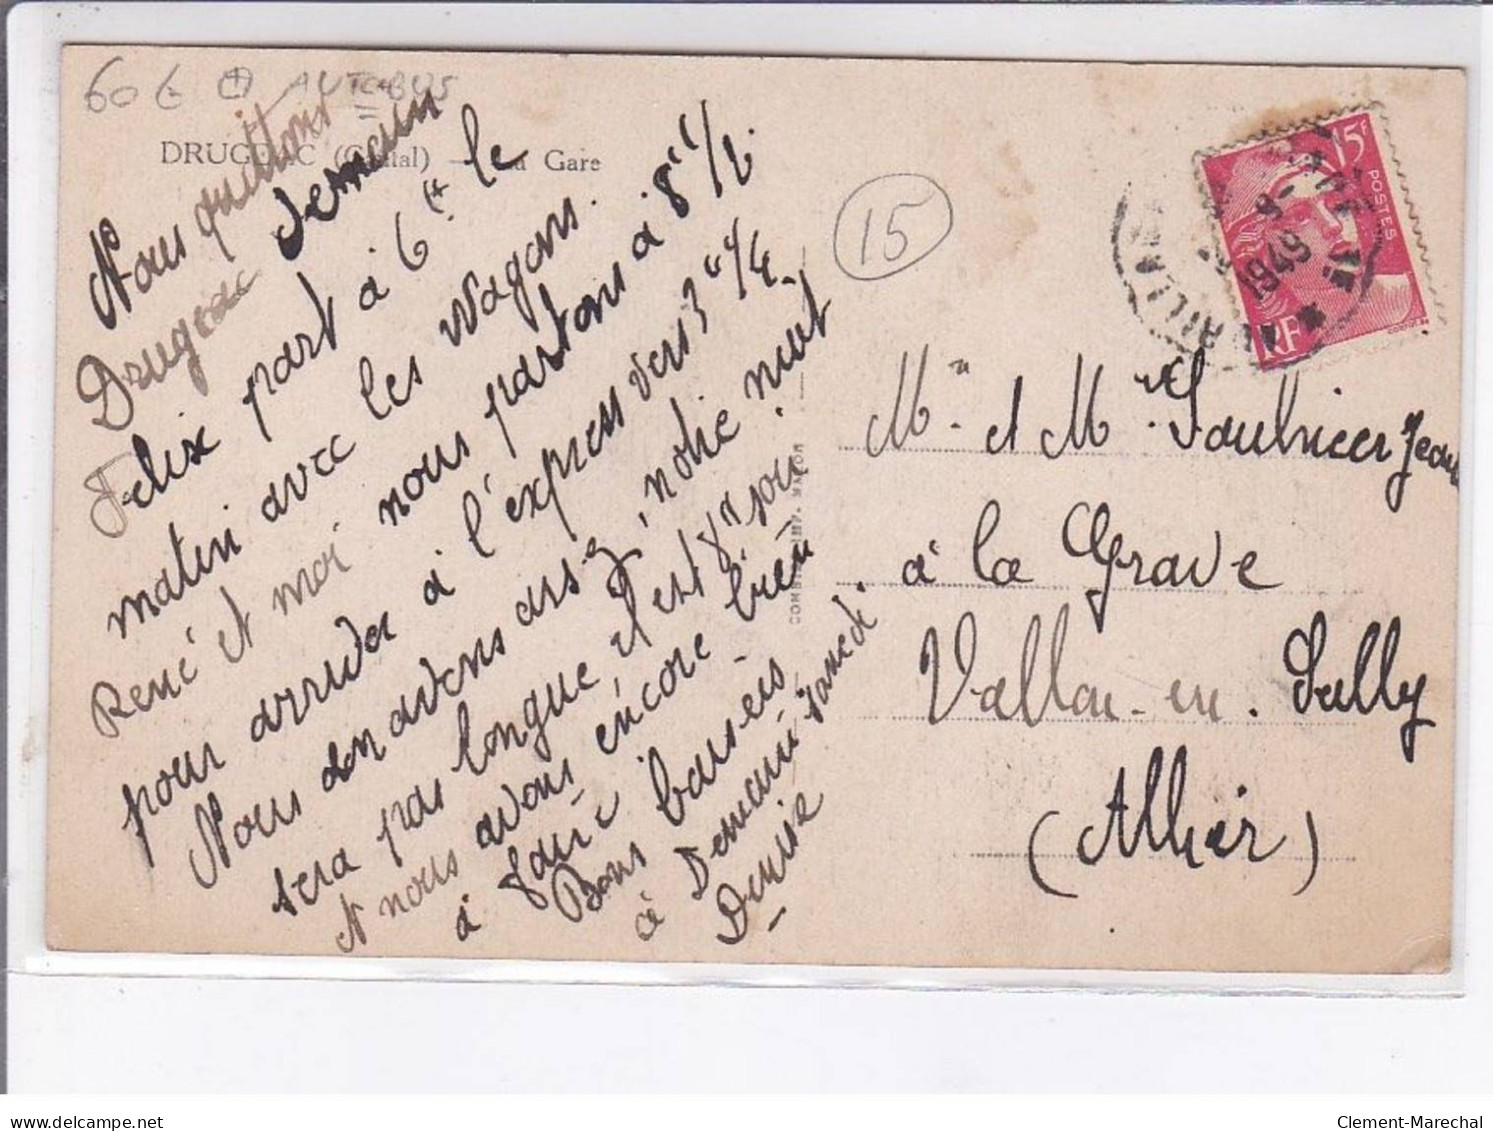 60 € AUTOBUS
DRUGEAC (Cantal) — La Gare
Nous quittons
Drugeac demain
Felix part à 6 h le
matin avec les wagons.
René et moi nous partons à 8 h 1/2.
pour arriver à l'express vers 3 h 1/4.
Nous en avons assez, notre nuit
sera pas longue, il est jour
et nous avons encore bien
à faire
Bons baisers
à Demain samedi.
Denise
15
COMBIER IMP. MACON
15F
POSTES
RF
1949
Mr et Me Saulnier Jean
à la Grave
Vallon-en-Sully
(Allier)
Clement-Marechal
www.delcampe.net